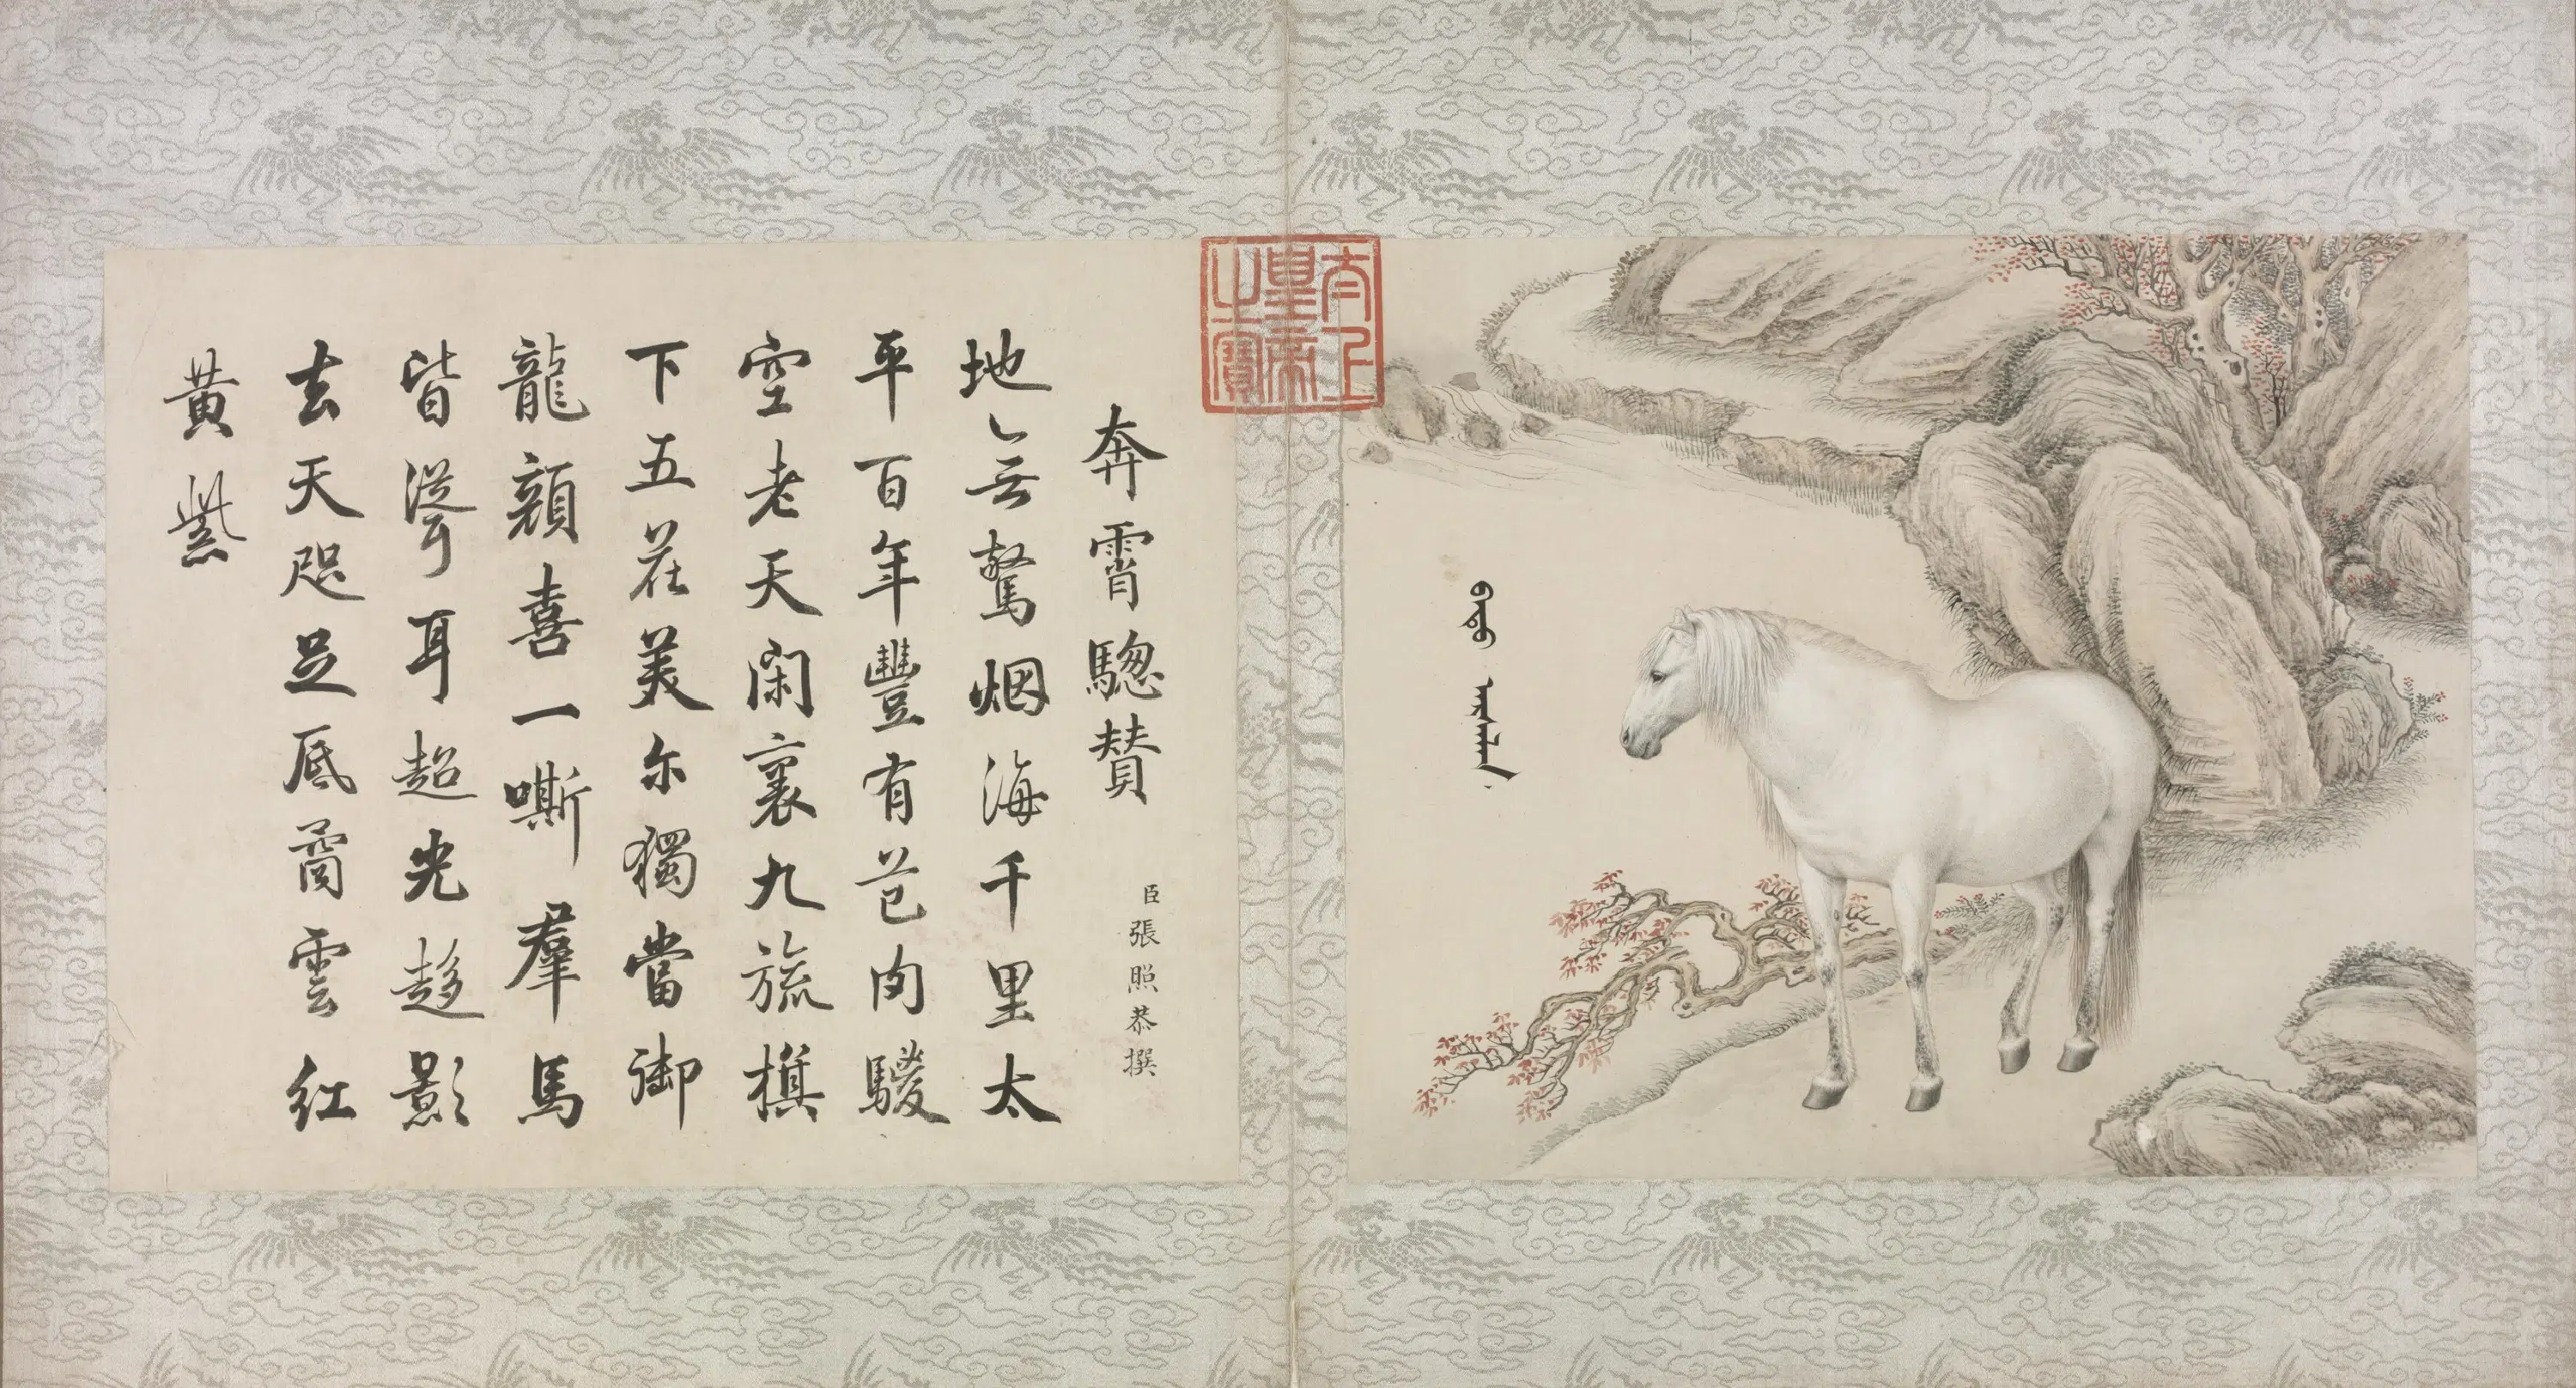 太上皇帝之寶
奔霄驄贊
臣張照恭撰
地無驚烟海千里太
平百年豐有芑肉騣
空老天閑裏九旒旗
下五花美尔獨當御
龍顏喜一嘶羣馬
皆聳耳超光趍影
去天咫足底矞雲紅
黃紫